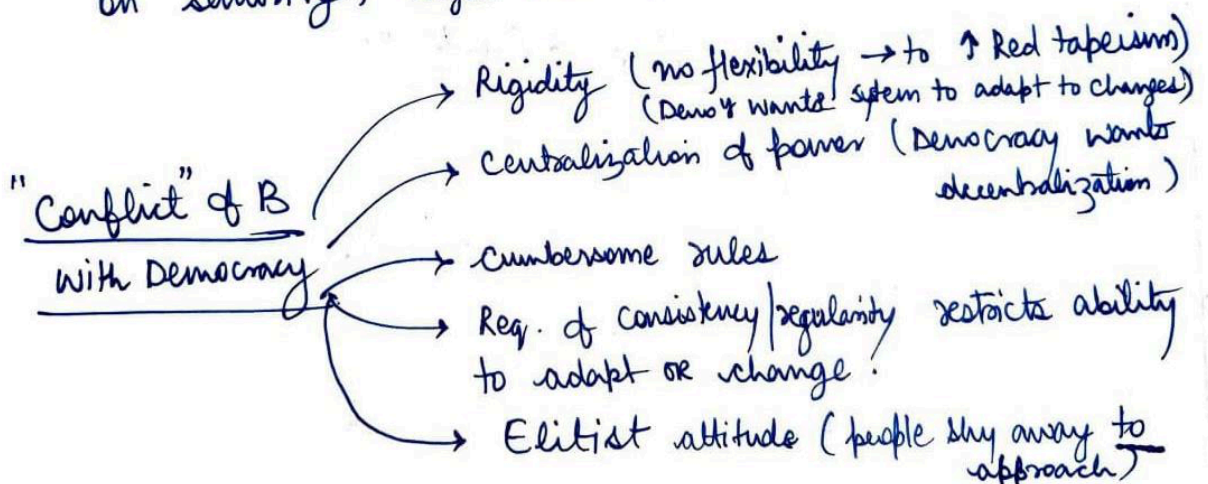 on
Rigidity (no flexibility → to ↑ Red tapeism)
(Demo'y wants system to adapt to changes)
Centralization of power (Democracy wants
decentralization)
"Conflict" of B
with Democracy
Cumbersome rules
Req. of consistency/regularity restricts ability
to adapt or change.
Elitist attitude (people shy away to
approach)